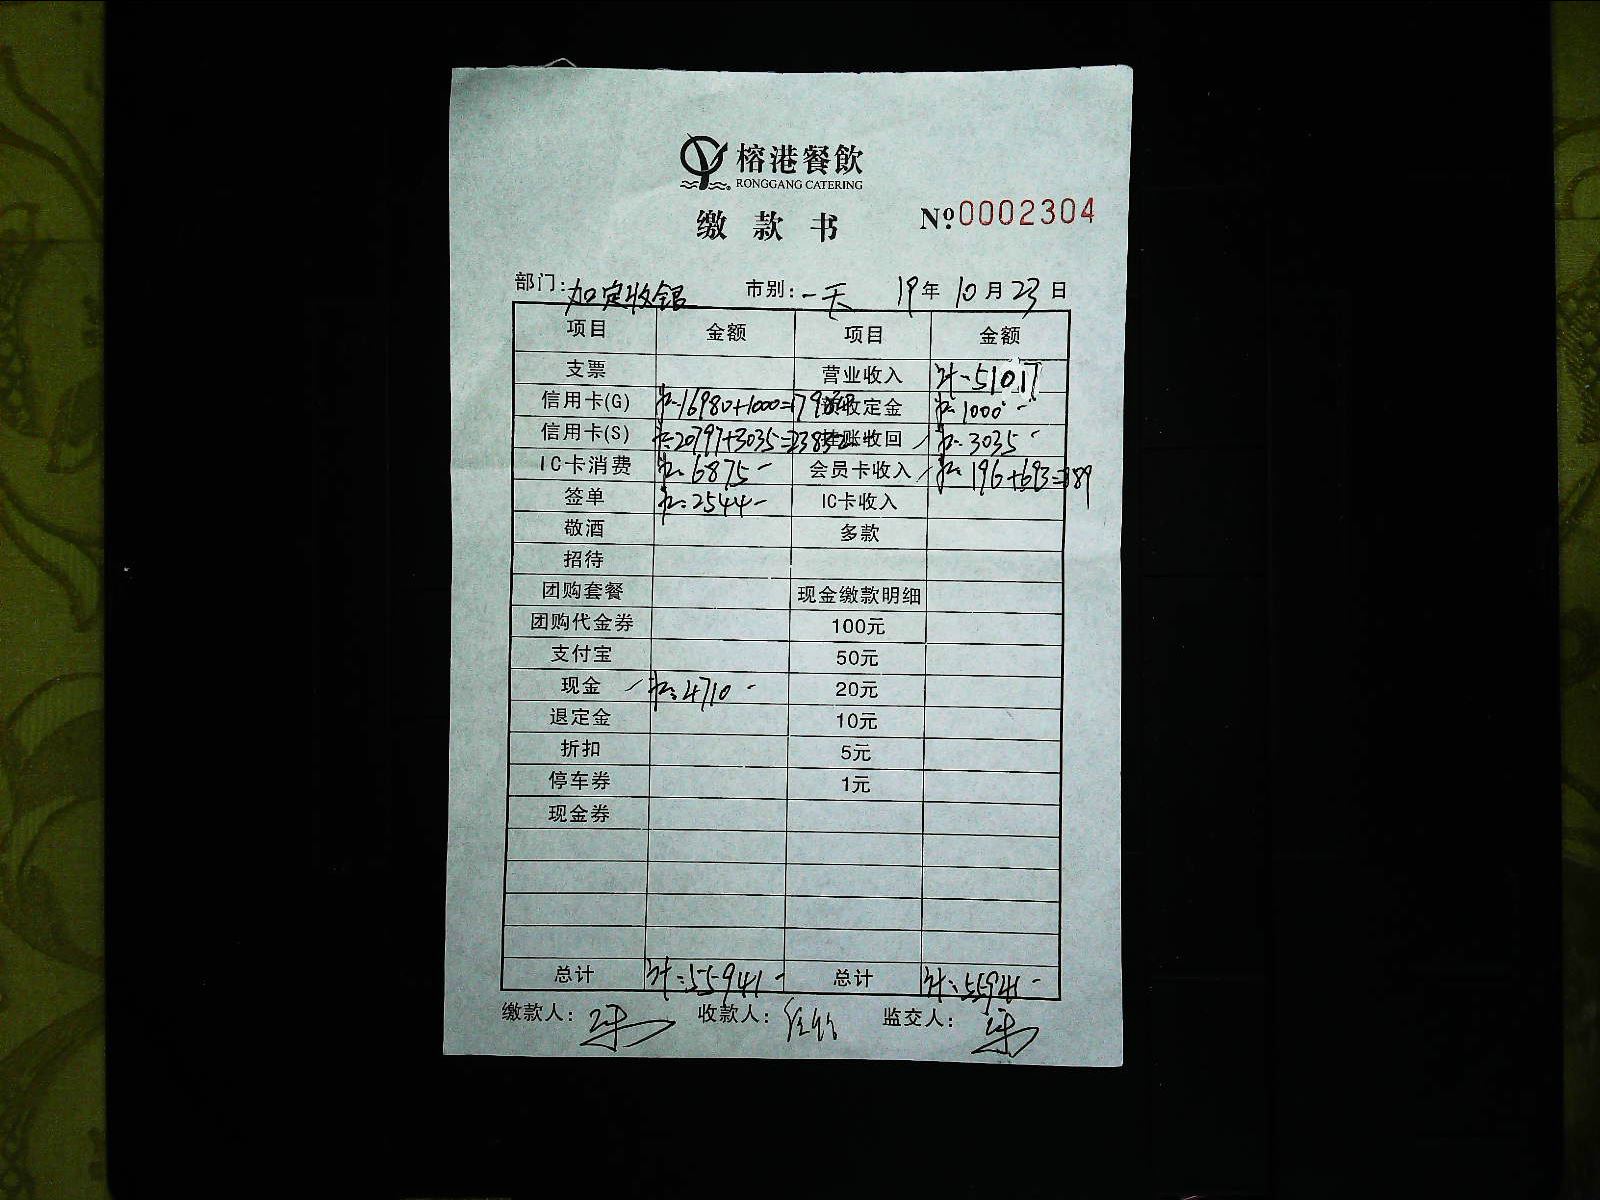 榕港餐飲
RONGGANG CATERING
缴款书 №0002304
部门: 加定收银 市别: 一天 19年10月23日
项目 金额 项目 金额
支票 营业收入 51017
信用卡(G) 16980+1000=17980 预收定金 1000-
信用卡(S) 20797+3035=23832 挂账收回 3035-
IC卡消费 6875- 会员卡收入 196+693=889
签单 2544- IC卡收入
敬酒 多款
招待
团购套餐 现金缴款明细
团购代金券 100元
支付宝 50元
现金 4710- 20元
退定金 10元
折扣 5元
停车券 1元
现金券
总计 计:55941- 总计 计:55941-
缴款人: 收款人: 监交人: